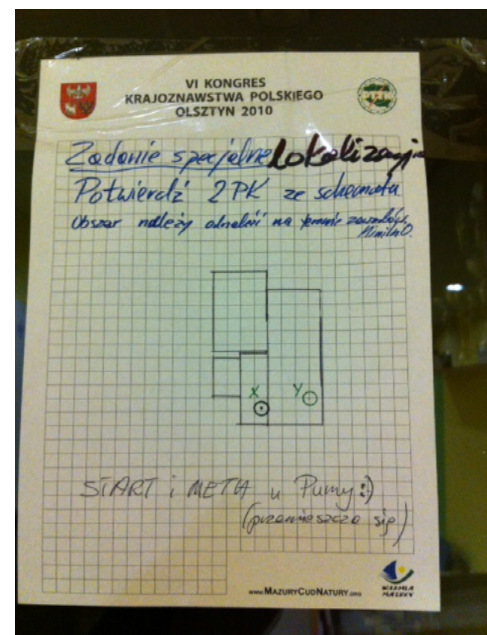 VI KONGRES
KRAJOZNAWSTWA POLSKIEGO
OLSZTYN 2010
Zadanie specjalne lokalizacyjne
Potwierdź 2 PK ze schematu
Obszar należy odnaleźć na terenie zawodów
MiniInO.
X
Y
START i META u Pumy :)
(przemieszcza się)
www.MAZURYCUDNATURY.org
WARMIA
MAZURY